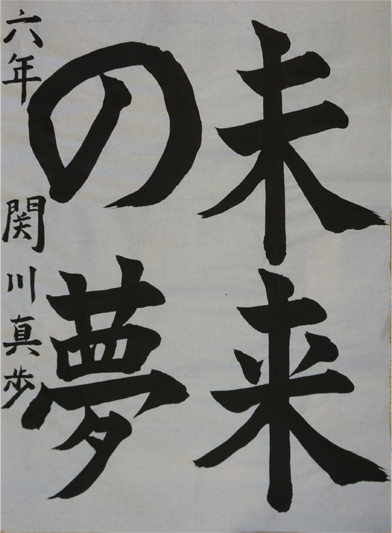 未来
の夢
六年 関川真歩